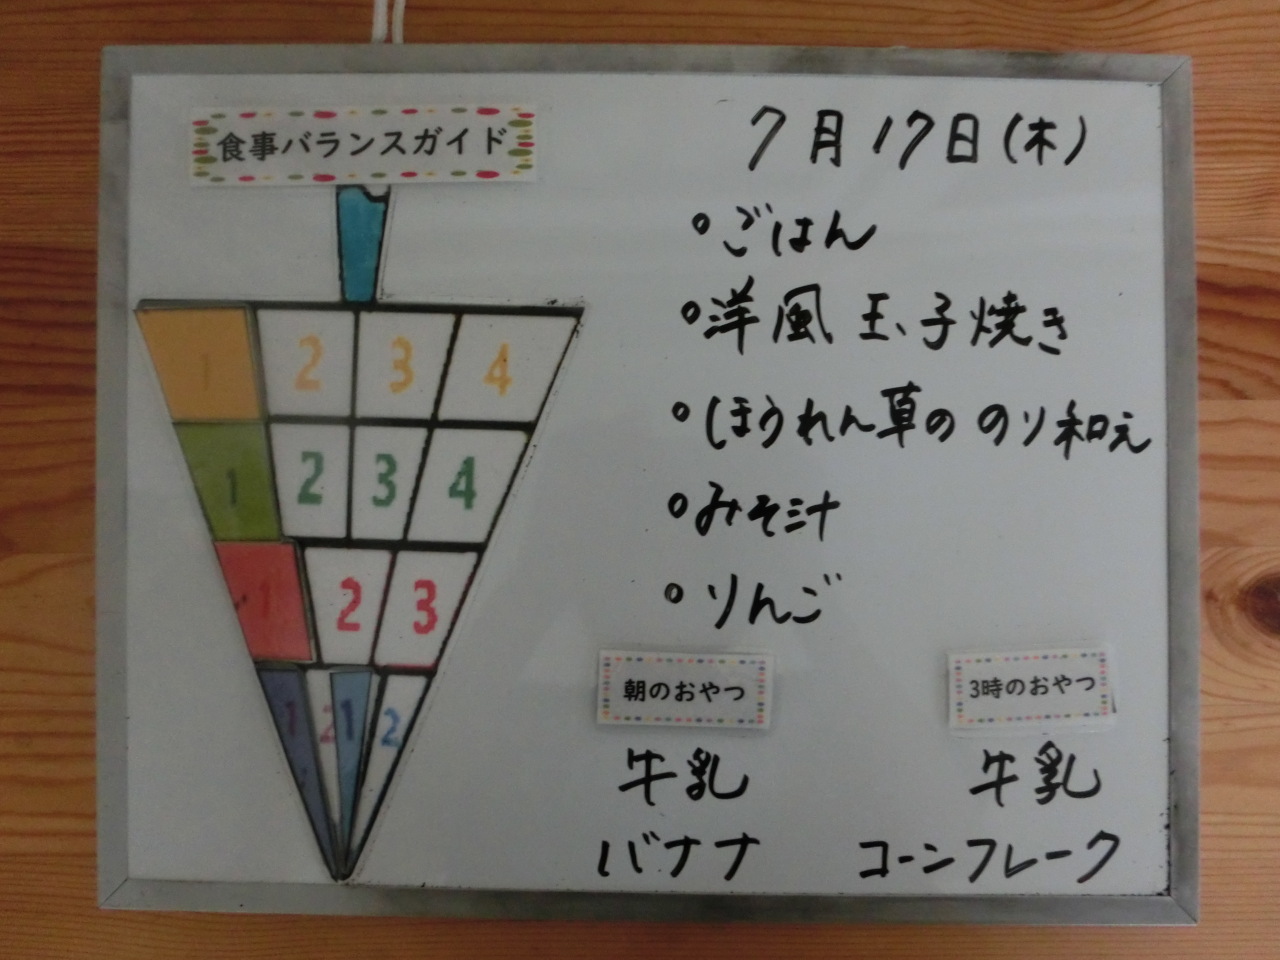 食事バランスガイド
7月17日(木)
ごはん
洋風玉子焼き
ほうれん草ののり和え
みそ汁
りんご
1 2 3 4
1 2 3 4
1 2 3
1 2 1 2
朝のおやつ
牛乳
バナナ
3時のおやつ
牛乳
コーンフレーク